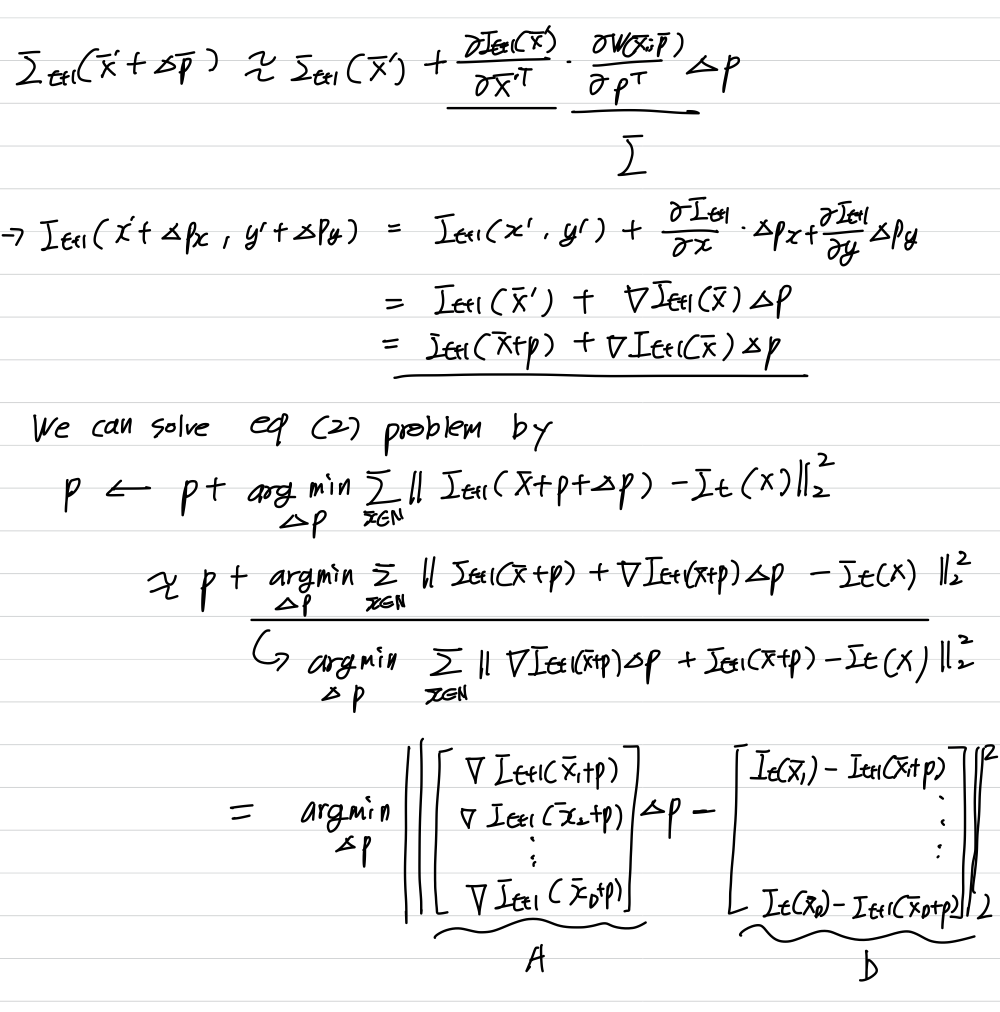 I_{t+1}(x̄' + Δp̄) ≈ I_{t+1}(x̄') + ∂I_{t+1}(x̄')/∂x̄'^T · ∂W(x̄;p̄)/∂p^T Δp
I
→ I_{t+1}(x' + Δp_x, y' + Δp_y) = I_{t+1}(x', y') + ∂I_{t+1}/∂x · Δp_x + ∂I_{t+1}/∂y Δp_y
= I_{t+1}(x̄') + ∇I_{t+1}(x̄) Δp
= I_{t+1}(x̄+p) + ∇I_{t+1}(x̄) Δp
We can solve eq (2) problem by
p ← p + arg min_{Δp} Σ_{x∈N} ‖ I_{t+1}(x̄+p+Δp) - I_t(x) ‖_2^2
≈ p + argmin_{Δp} Σ_{x∈N} ‖ I_{t+1}(x̄+p) + ∇I_{t+1}(x̄+p) Δp - I_t(x) ‖_2^2
↳ argmin_{Δp} Σ_{x∈N} ‖ ∇I_{t+1}(x̄+p)Δp + I_{t+1}(x̄+p) - I_t(x) ‖_2^2
= argmin_{Δp} ‖ [ ∇I_{t+1}(x̄_1+p) ∇I_{t+1}(x̄_2+p) ⋮ ∇I_{t+1}(x̄_D+p) ] Δp - [ I_t(x̄_1) - I_{t+1}(x̄_1+p) ⋮ I_t(x̄_D) - I_{t+1}(x̄_D+p) ] ‖_2^2
A b